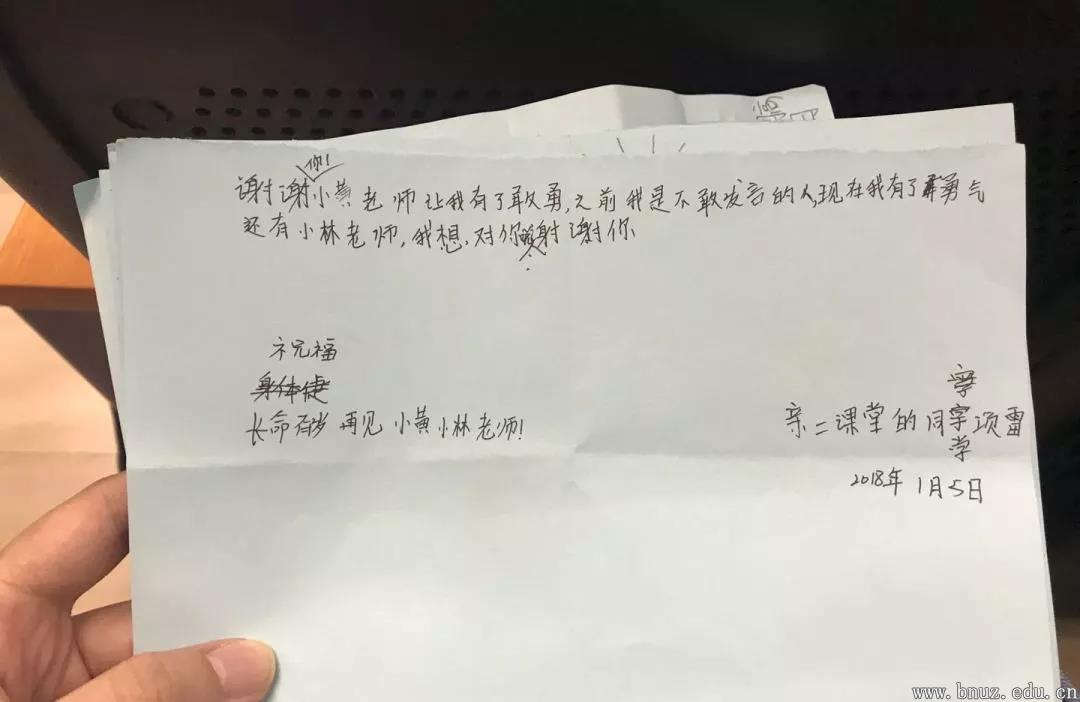 谢谢你！小黄老师让我有了敢勇,之前我是不敢发言的人,现在我有了勇气
还有小林老师,我想,对你说谢谢你
祝福
身体健
长命百岁 再见 小黄 小林老师!
亲二课堂的同学 项雷
2018年 1月5日
www.bnuz.edu.cn